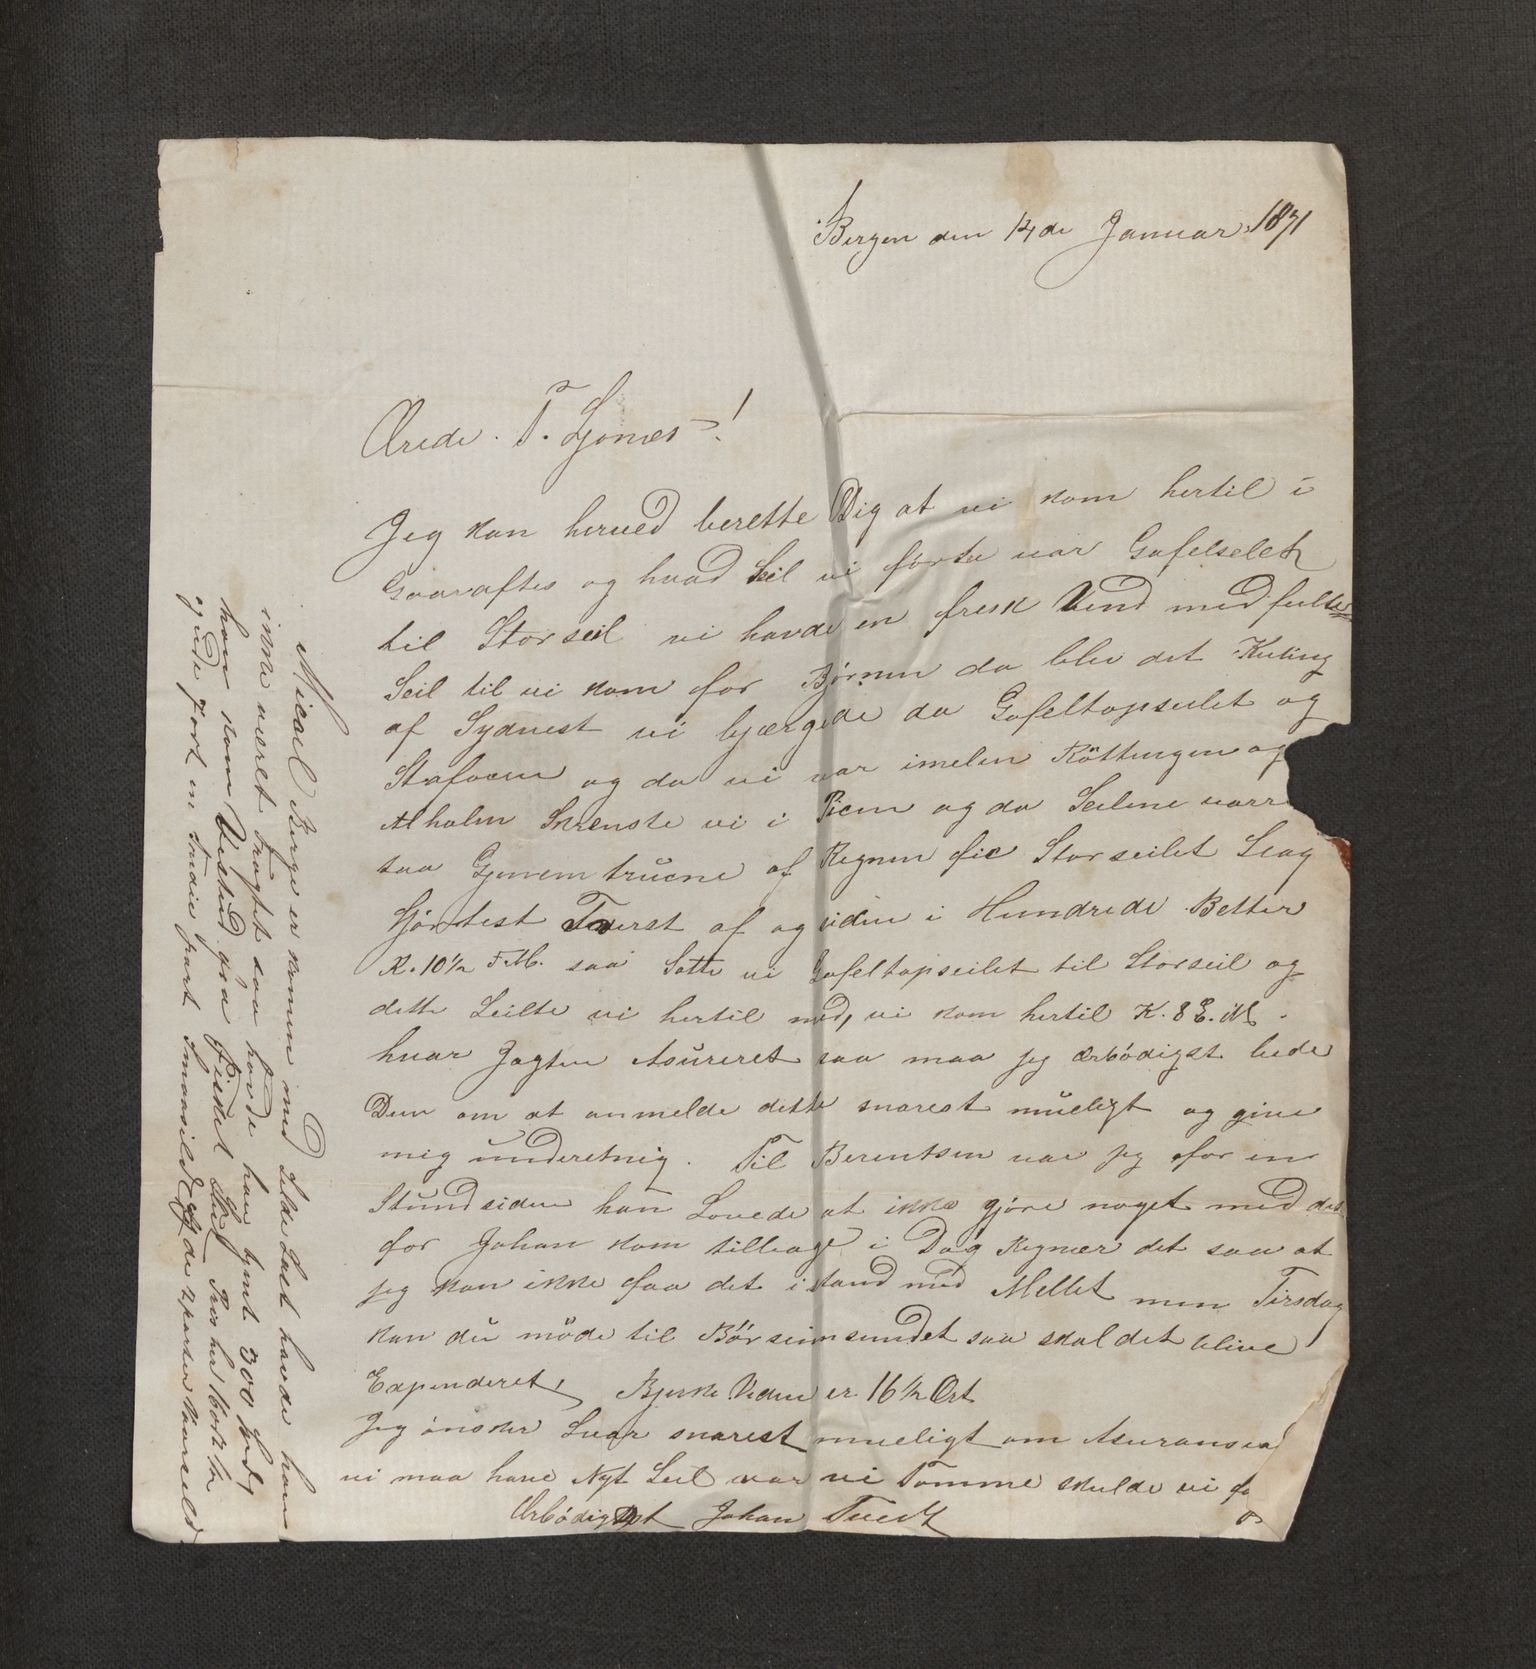 Bergen den 14de Januar 1871
Ærede T. Ljones!
Jeg kan herved berette Dig at vi kom hertil i
Gaaraftes og hvad Seil vi førte var Gafelseilet
til Storseil vi havde en fresk Vind med fulde
Seil til vi kom for Bjørnen da blev det Kuling
af Sydvest vi bjærgede da Gafeltopseilet og
Stafocen og da vi var imelen Röttingen og
Alholm Skrenste vi i Roen og da Seilene varre
saa Gjenemtrucne af Regnen fic Storseilet Slag
Tverst af og siden i Hundrede Better
K. 10½ F.M. saa Satte vi Gafeltopseilet til Storseil og
dette Seilte vi hertil med, vi kom hertil K. 8 E. M.
hvar Jagten Asureret saa maa jeg ærbödigst bede
Dem om at anmelde dette snarest mueligt og give
mig underetnig. Til Berentsen var jeg for en
Stund siden han Lovede at ikke gjöre noget med det
for Johan kom tilbage i Dag Regner det saa at
jeg kan ikke faa det istand med Mellet men Tirsdag
kan du möde til Börseimsundet saa skal det blive
Expenderet, Bjerke Veden er 16½ Ort
Jeg önsker Svar snarest mueligt om Asuransen
vi maa have Nyt Seil var vi Tomme skulde vi fo
Ærbödigst Johan Tveit
Micael Berge er komen med Silde Last havde han
ikke været fragtet saa havde han tjent 300 Spd,
han kom Vestend fra Fisket Prös her bort er
gjort en Tredie part Smaasild af de 2 parter Vaarsild